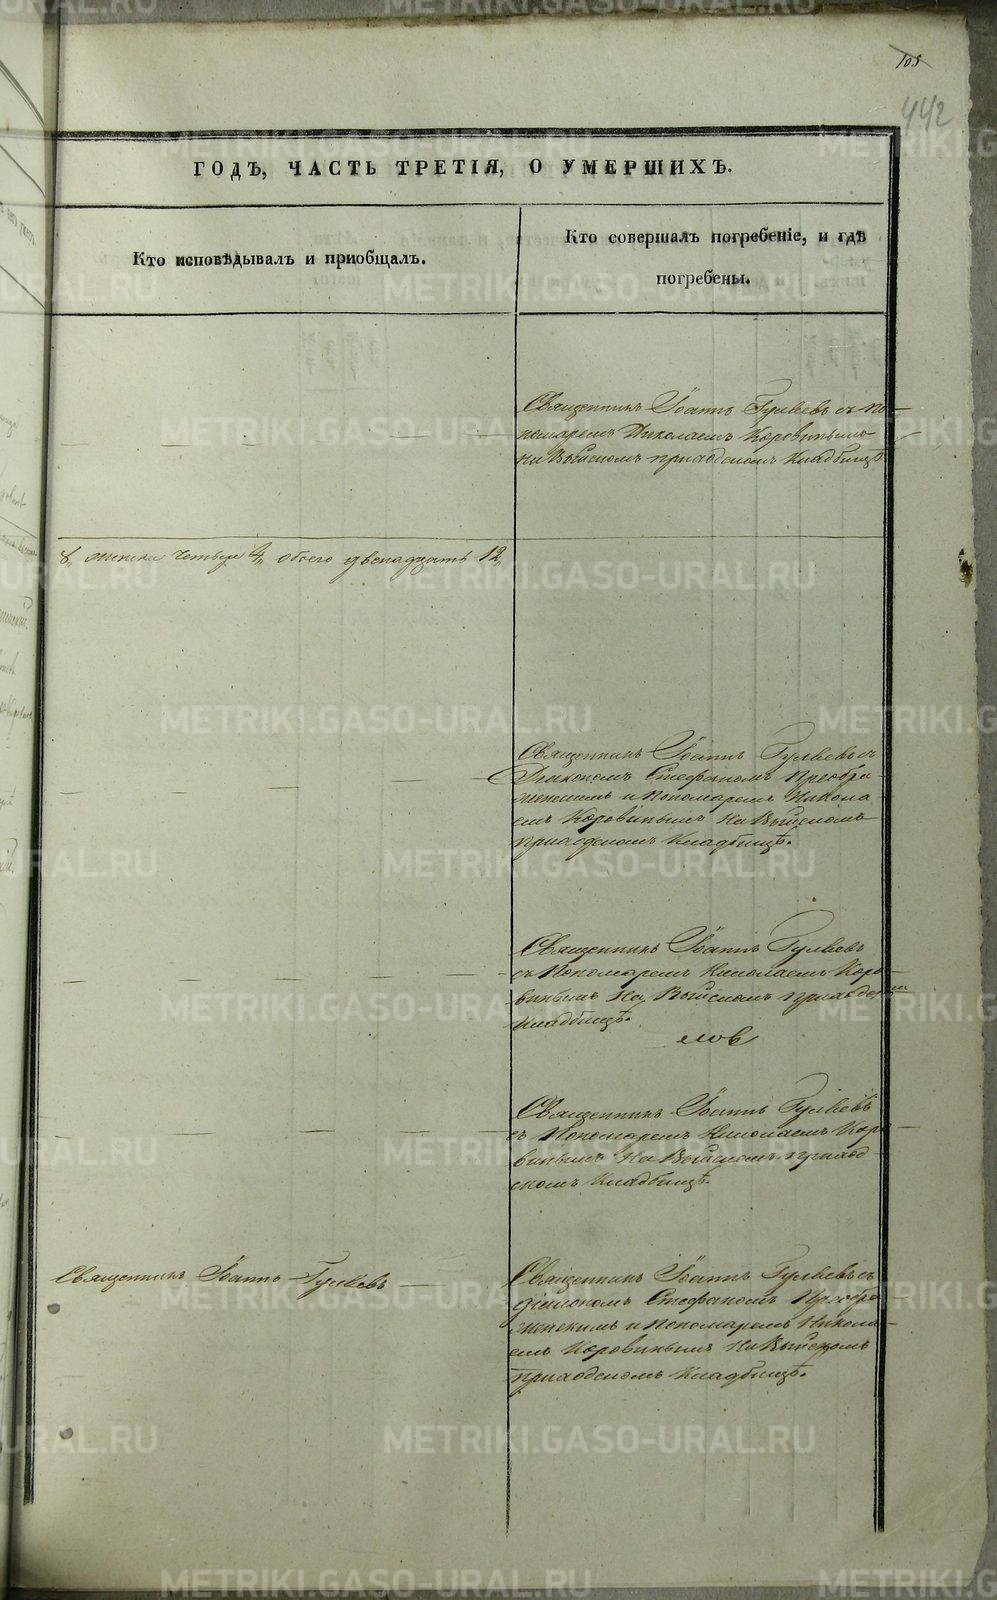 105
442
ГОДЪ, ЧАСТЬ ТРЕТІЯ, О УМЕРШИХЪ.
Кто исповѣдывалъ и пріобщалъ.
Кто совершалъ погребеніе, и гдѣ
погребены.
Священникъ Іоаннъ Гуляевъ съ По-
номаремъ Николаемъ Коровинымъ
на Выйскомъ приходскомъ кладбищѣ
8, женска четыре 4, обоего двенадцать 12,
Священникъ Іоаннъ Гуляевъ съ
Діакономъ Стефаномъ Преобра
женскимъ и Пономаремъ Никола
емъ Коровинымъ На Выйскомъ
приходскомъ кладбищѣ.
Священникъ Іоаннъ Гуляевъ
съ Пономаремъ Николаемъ Коро-
винымъ На Выйскомъ приходском
кладбищѣ.
ловъ
Священникъ Іоаннъ Гуляевъ
съ Пономаремъ Николаемъ Коро
винымъ На Выйскомъ приход
скомъ кладбищѣ.
Священникъ Іоаннъ Гуляевъ
Священникъ Іоаннъ Гуляевъ съ
діакономъ Стефаномъ Преобра
женскимъ и Пономаремъ Никола-
емъ Коровинымъ На Выйскомъ
приходскомъ кладбищѣ.
METRIKI.GASO-URAL.RU